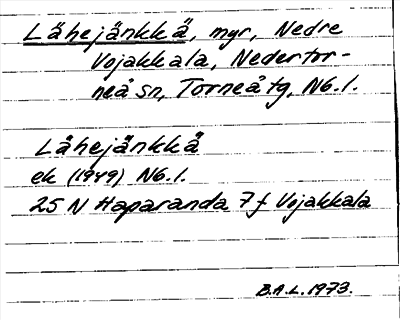 Lähejänkkä, myr, Nedre
Vojakkala, Nedertor-
neå sn, Torneå tg, Nb.l.
Lähejänkkä
ek (1949) Nb.l.
25 N Haparanda 7 f Vojakkala
B.A.L. 1973.